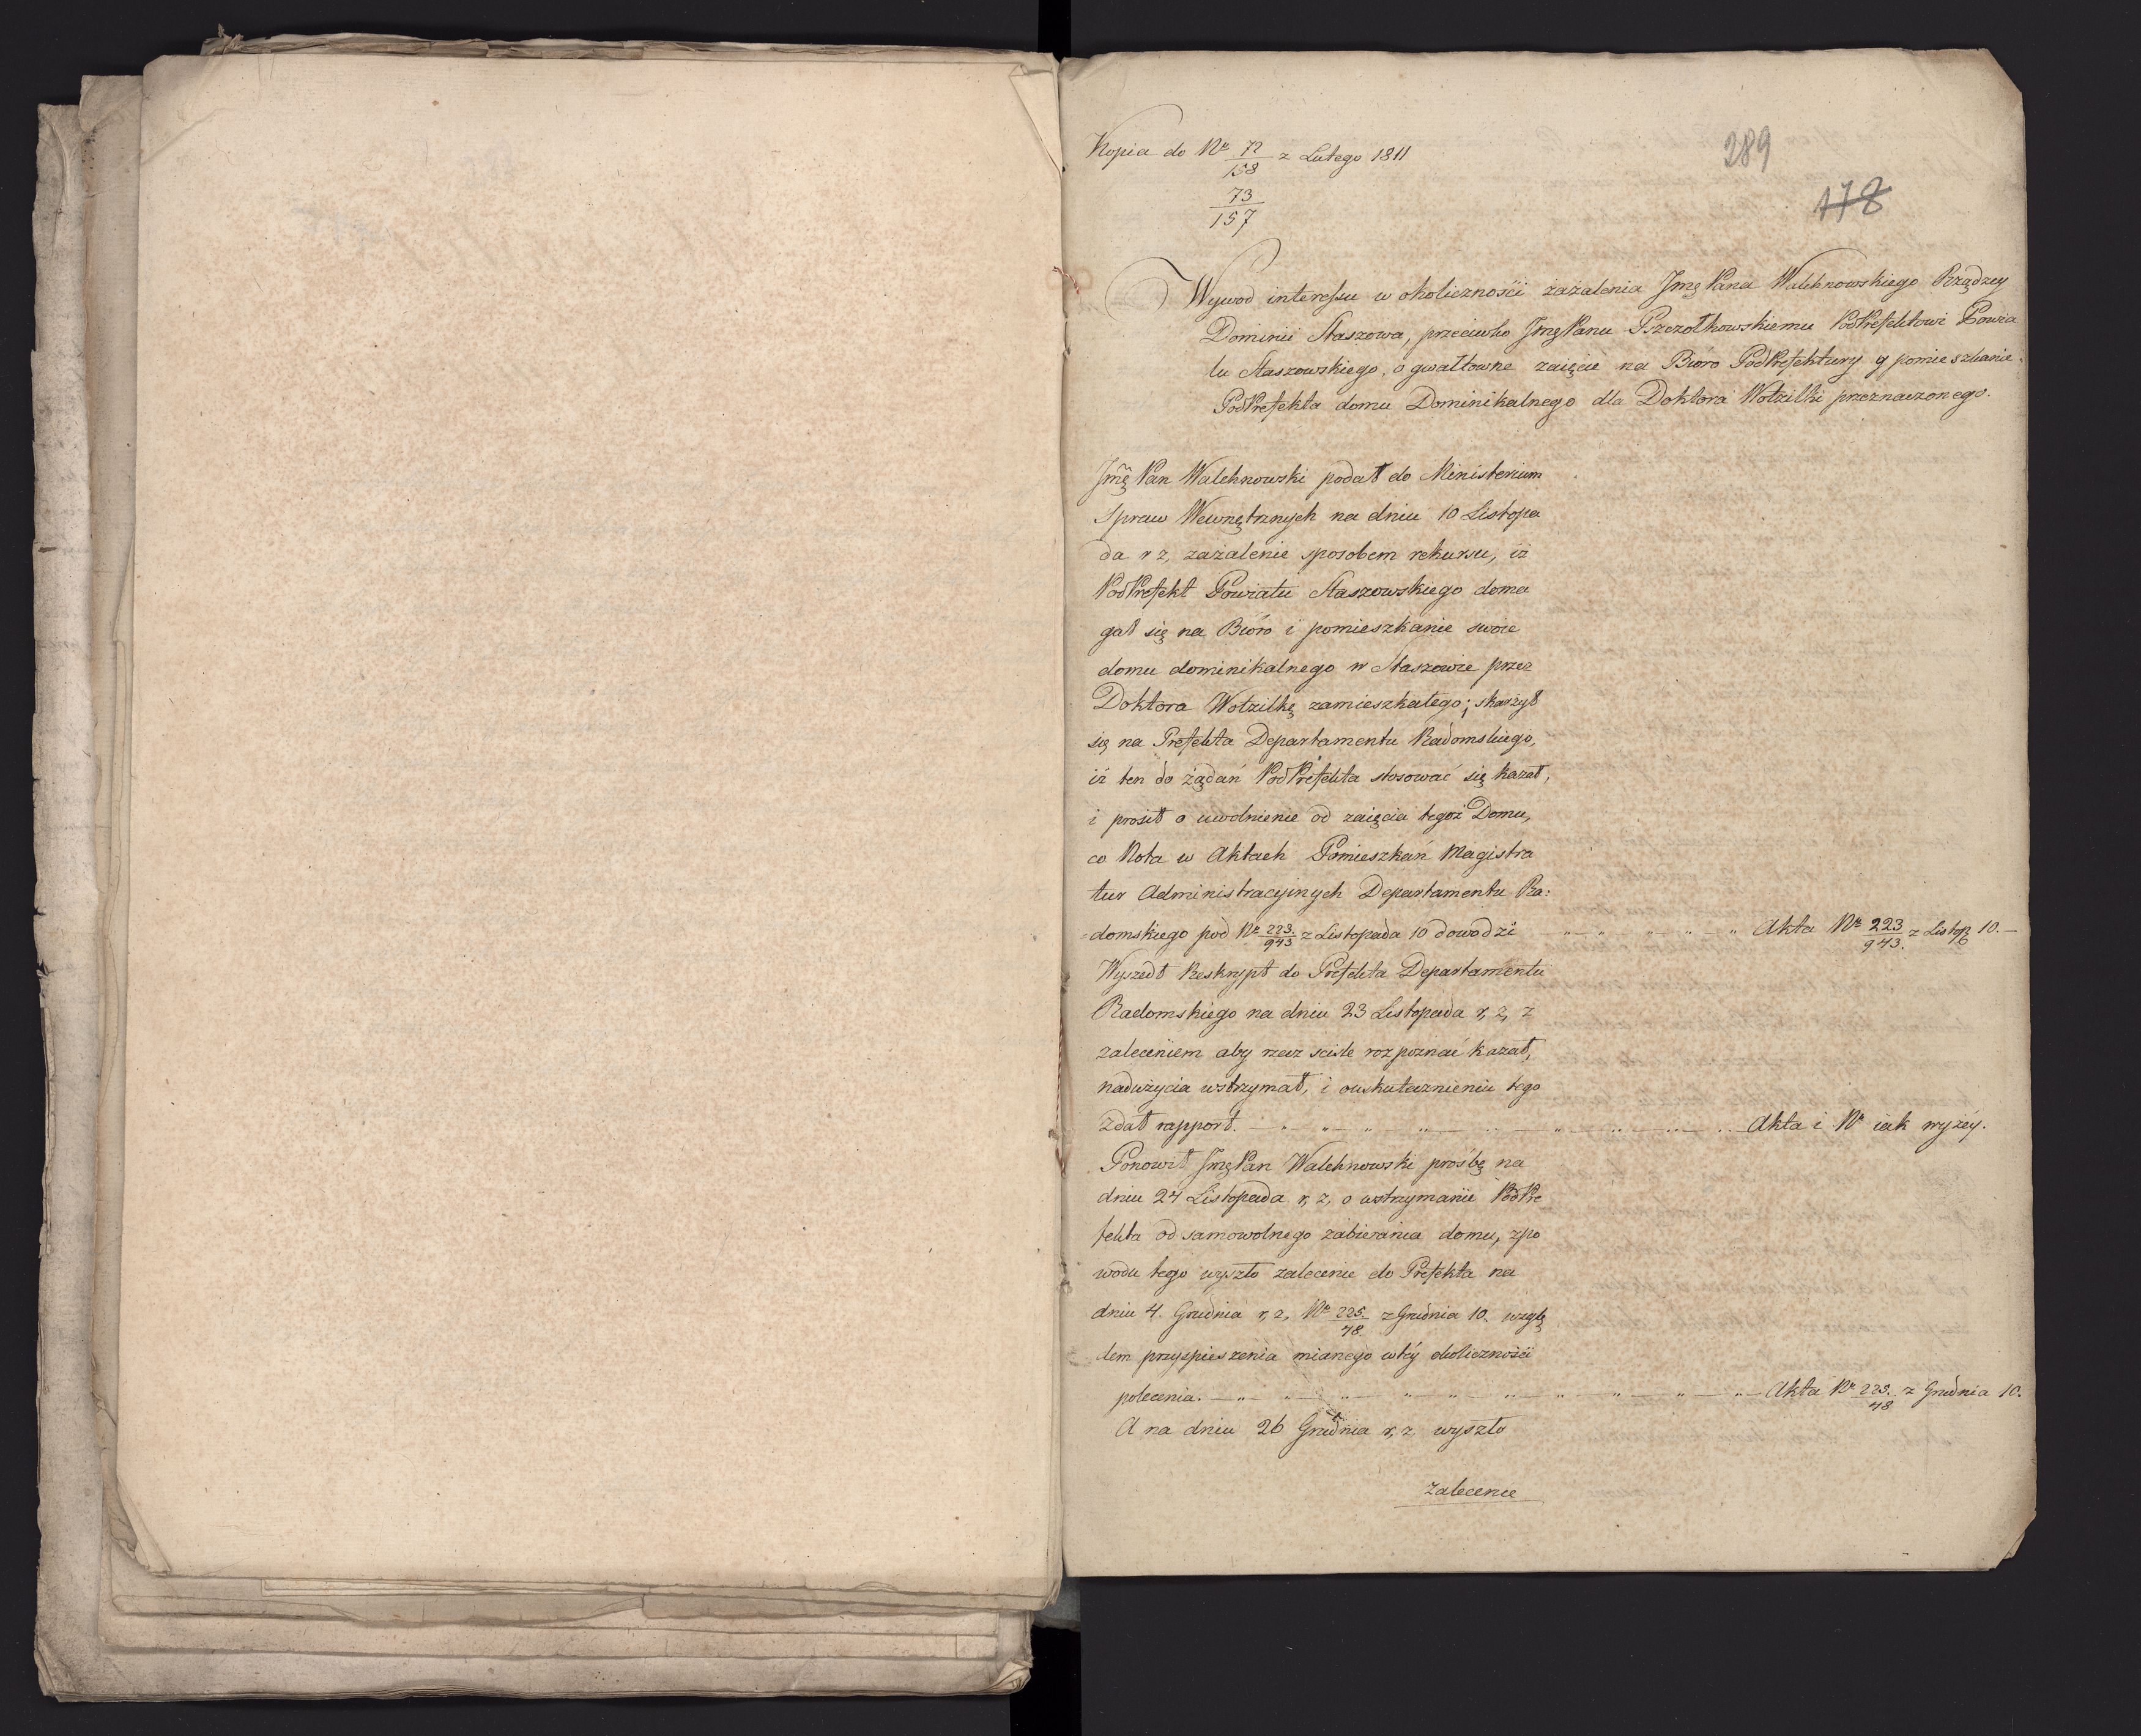 Kopia do Nr 72/158 z Lutego 1811
73/157
289
178
Wywod interessu w okoliczności zażalenia Jmę Pana Walchnowskiego Rządzcy
Dominii Staszowa, przeciwko JmęPanu Pszczołkowskiemu PodPrefektowi Powia
tu Staszowskiego, o gwałtowne zaięcie na Bióro PodPrefektury y pomieszkanie
PodPrefekta domu Dominikalnego dla Doktora Wotzilki przeznaczonego.
Jmę Pan Walchnowski podał do Ministerium
Spraw Wewnętrznych na dniu 10 Listopa
da r z, zażalenie sposobem rekursu, iż
PodPrefekt Powiatu Staszowskiego doma
gał się na Bióro i pomieszkanie swoie
domu dominikalnego w Staszowie przez
Doktora Wotzilkę zamieszkałego; skarżył
się na Prefekta Departamentu Radomskiego,
iż ten do żądań PodPrefekta stosować się kazał,
i prosił o uwolnienie od zaięcia tegoż Domu,
co Nota w Aktach Pomieszkań Magistra
tur Administracyinych Departamentu Ra:
-domskiego pod Nr 223./943 z Listopada 10 dowodzi „ — „ „ — „ „ Akta Nr 223/943. z Listop 10. —
Wyszedł Reskrypt do Prefekta Departamentu
Radomskiego na dniu 23 Listopada r, z, z
zaleceniem aby rzecz sciśle rozpoznać kazał,
nadużycia wstrzymał, i o uskutecznieniu tego
Zdał rapport. — „ „ — „ „ — „ — „ „ — „ Akta i Nr iak wyżéy.
Ponowił JmęPan Walchnowski prośbę na
dniu 24 Listopada r, z, o wstrzymanie PodPre
fekta od samowolnego zabierania domu, z po
wodu tego wyszło zalecenie do Prefekta na
dniu 4. Grudnia r, z, Nr 225./48 z Grudnia 10. wzglę
dem przyspieszenia mianego w téy okoliczności
polecenia. — „ — „ — „ — „ — „ — „ — „ — Akta Nr 225./48 z Grudnia 10.
A na dniu 26 Grudnia r, z wyszło
zalecenie